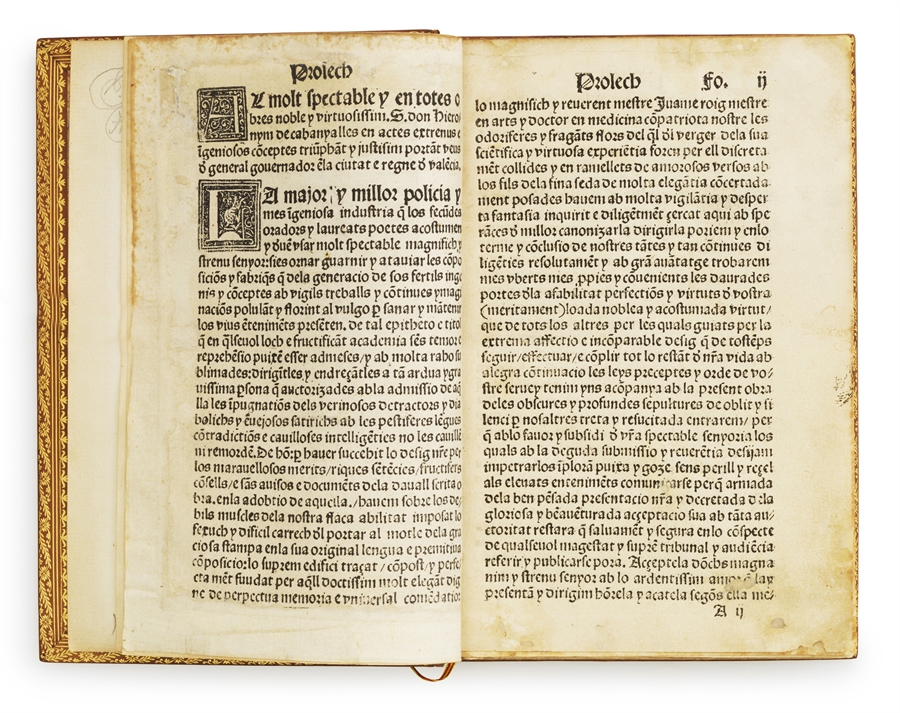 Prolech
AL molt spectable y en totes o
bres noble y virtuosissim. S. don Hiero
nym de cabanyalles en actes extrenus e
īgeniosos cōceptes triūphāt y justisim portāt veus
ð general governador ēla ciutat e regne ð valēcia.
LA major y millor policia y
mes īgeniosa industria q̄ los fecūdes
oradors y laureats poetes acostumen
y ðuē vsar molt spectable magnifich y
strenu senyor: sies ornar guarnir y ataviar les cōpo
siciōs y fabriq̄s q̄ dela generacio de sos fertils inge
nis y cōceptes ab vigils treballs y cōtinues ymagi
naciōs polulāt y florint al vulgo ꝑ sanar y māteni
los vius ētenimēts presētēn. de tal epitheto e titol
q̄ en q̄lsevol loch e fructificāt academia sēs temor e
reprehēsio puixē esser admeses / y ab molta raho su
blimades: dirigītles y endreçātles a tā ardua ygra
uissima ꝑsona q̄ auctorizades ab la admissio de aq̄
lla les īpugnatiōs dels verinosos detractors y dia
bolichs y ēuejosos satirichs ab les pestiferes lēgues
cōtradictiōs e cavilloses intelligēties no les cauillē
ni remordē. De hōꝛ ꝑ haver succehit lo desig nr̄e per
los marauellosos merits / riques sētēcies / fructifers
cōsells / e sās auisos e documēts dela dauall scrita o
bra. enla adobtio de aquella. / hauem sobre los de
bils muscles dela nostra flaca abilitat imposat lo
fexuch y dificil carrech ðl portar al motle dela gra
ciosa stampa enla sua original lengua e premitiua
cōposicio: lo suprem edifici traçat / cōpost / y perfe
cta mēt fuudat per aq̄ll doctissim molt elegāt dig
ne de perpectua memoria e vniuersal comēdatio
Prolech fo. ij
lo magnifich y reverent mestre Juame roig mestre
en arts y doctor en medicina cōpatriota nostre les
odoriferes y fragāts flors del q̄l ði verger dela sua
sciētifica y virtuosa experiētia foren per ell discreta
mēt collides y en ramellets de amorosos versos ab
los fils dela fina seda de molta elegātia cōcertada
ment posades hauem ab molta vigilātia y desper
ta fantasia inquirit e diligētmēt çercat aqui ab spe
rāces ð millor canonizarla dirigirla poriem y enlo
terme y cōclusio de nostres tātes y tan cōtinues di
ligēties resolutamēt y ab grā auātatge trobarem
mes vberts mes ꝓpies y cōuenients les daurades
portes ðla afabilitat perfectiōs y virtuts ð vostra
(meritament) loada noblea y acostumada virtut /
que de tots los altres per les quals guiats per la
extrema affectio e incōparable desig q̄ de tostēps
seguir / effectuar / e cōplir tot lo restāt ð nr̄a vida ab
alegra cōtinuacio les leys preceptes y orde de vo /
stre seruey tenim yns acōpanya ab la present obra
deles obscures y profundes sepultures de oblit y si
lenci ꝑ nosaltres treta y resucitada entrarem / per
q̄ ablo fauor y subsidi ð vr̄a spectable senyoria los
quals ab la deguda submissio y reuerētia desijam
impetrarlos īplorā puixa y goze sens perill y reçel
als elevats entenimēts comunicarse perq̄ armada
dela ben pēsada presentacio nr̄a y decretada dela
gloriosa y bēauētura da acceptacio sua ab tāta au /
ctoritat restara q̄ saluamēt y segura enlo cōspecte
de qualseuol magestat y suprē tribunal y audiēcia
referir y publicarse pora. Acçeptela dōchs magna
nim y strenu senyor ab lo ardentissim amor q̄ lay
presentā y dirigim hōrela y acatela segōs ella me /
A ij